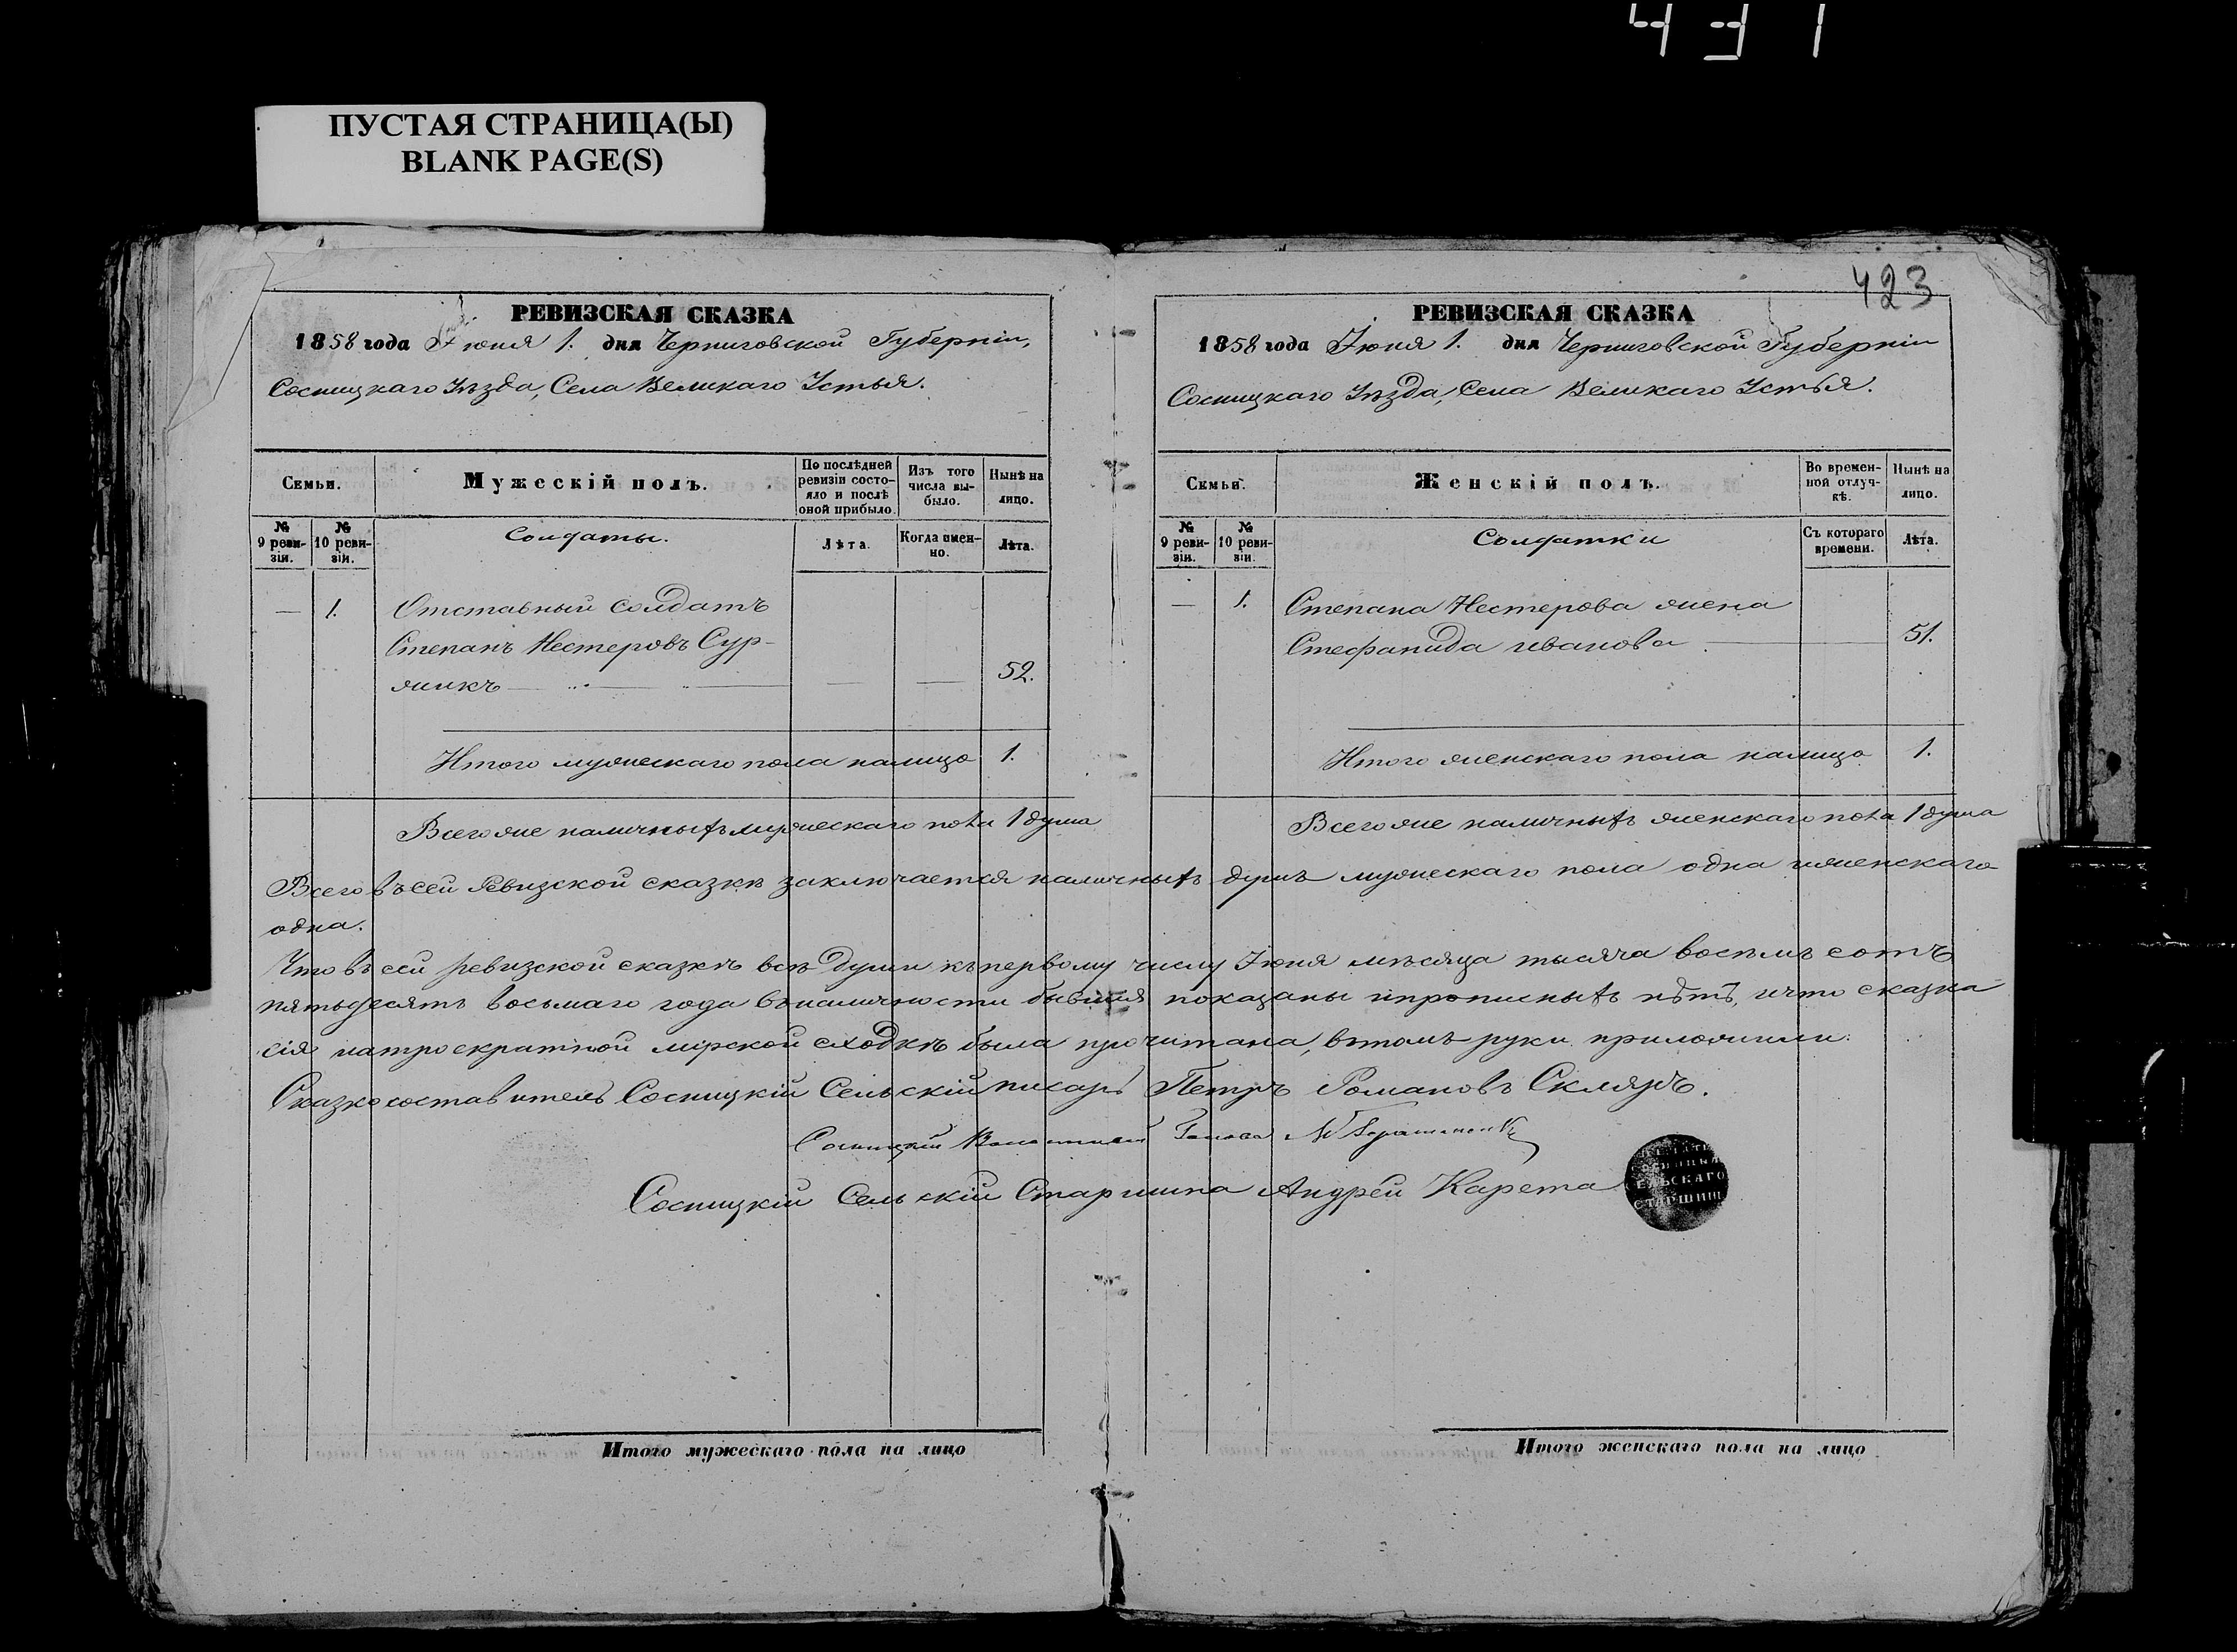 431
ПУСТАЯ СТРАНИЦА(Ы)
BLANK PAGE(S)
РЕВИЗСКАЯ СКАЗКА
1858 года Іюня 1. дня Черниговской Губерніи,
Сосницкаго Уѣзда, Села Великаго Устья.
Семьи.
Мужескій полъ.
По послѣдней ревизіи состояло и послѣ оной прибыло.
Изъ того числа выбыло.
Нынѣ на лицо.
№ 9 ревизіи.
№ 10 ревизіи.
Солдаты.
Лѣта.
Когда именно.
Лѣта.
— 1. Отставный солдатъ
Степанъ Нестеровъ Сур-
жикъ — — — 52.
Итого мужескаго пола налицо 1.
Всего же наличныхъ мужескаго пола 1 душа
423
РЕВИЗСКАЯ СКАЗКА
1858 года Іюня 1. дня Черниговской Губерніи
Сосницкаго Уѣзда, Села Великаго Устья.
Семьи.
Женскій полъ.
Во временной отлучкѣ.
Нынѣ на лицо.
№ 9 ревизіи.
№ 10 ревизіи.
Солдатки
Съ котораго времени.
Лѣта.
— 1. Степана Нестерова жена
Стефанида иванова — 51.
Итого женскаго пола налицо 1.
Всего же наличныхъ женскаго пола 1 душа
Всего въ сей Ревизской сказкѣ заключается наличныхъ душъ мужескаго пола одна и женскаго
одна.
Что въ сей ревизской сказкѣ всѣ души къ первому числу Іюня мѣсяца тысяча восемь сотъ
пятьдесятъ восьмаго года въ наличности бывшія показаны и прописныхъ нѣтъ, и что сказка
сія на троекратной мірской сходкѣ была прочитана, въ томъ руки приложили:
Сказкосоставитель Сосницкій Сельскій писарь Петръ Романовъ Скляръ.
Сосницкій Волостной Голова
Сосницкій Сельскій Старшина Андрей Карета
Итого мужескаго пола на лицо
Итого женскаго пола на лицо